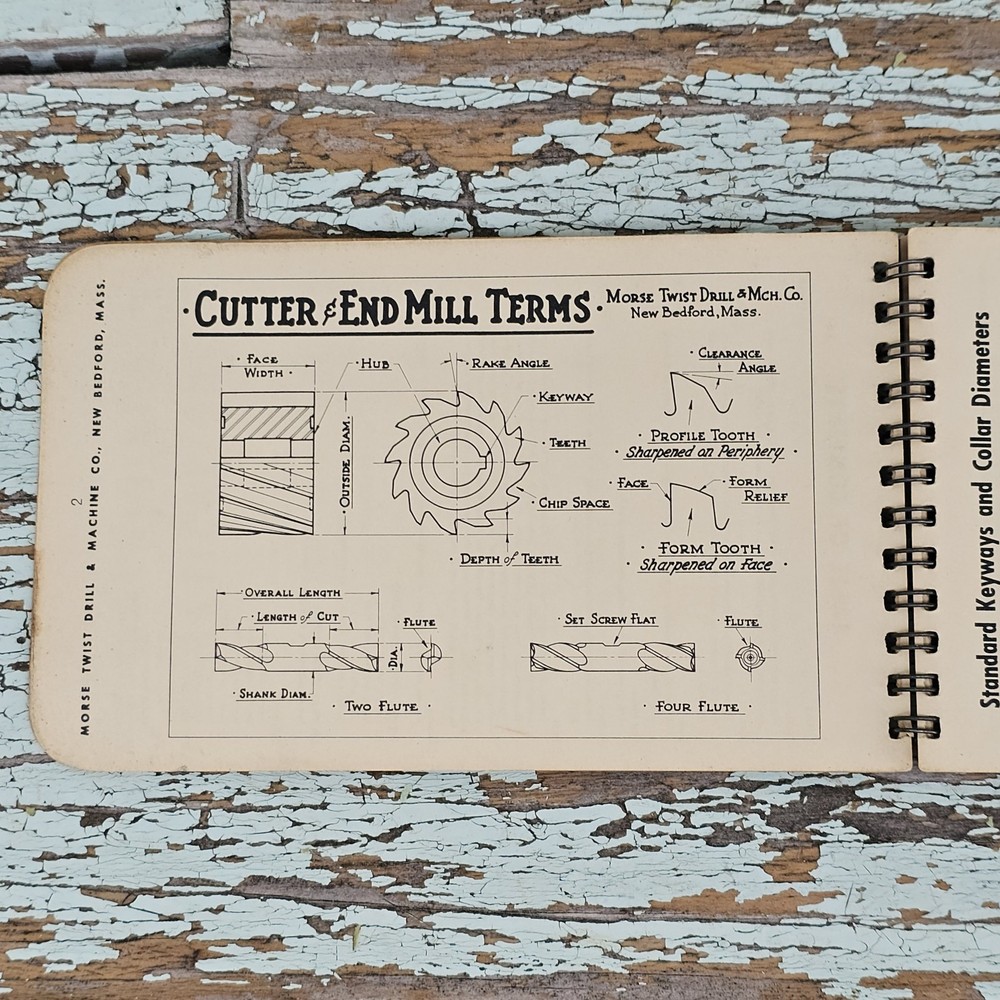 MORSE TWIST DRILL & MACHINE CO., NEW BEDFORD, MASS.
2
· CUTTER & END MILL TERMS ·
MORSE TWIST DRILL & MCH. CO.
New Bedford, Mass.
· FACE
WIDTH ·
· HUB
· RAKE ANGLE
· KEYWAY
· TEETH
· CHIP SPACE
· OUTSIDE DIAM. ·
· DEPTH of TEETH
· CLEARANCE
ANGLE
· PROFILE TOOTH
· Sharpened on Periphery ·
FACE ·
· FORM
RELIEF
· FORM TOOTH ·
· Sharpened on Face ·
· OVERALL LENGTH
· LENGTH of CUT
· FLUTE
· DIA. ·
· SHANK DIAM.
· TWO FLUTE ·
SET SCREW FLAT
FLUTE
· FOUR FLUTE ·
Standard Keyways and Collar Diameters